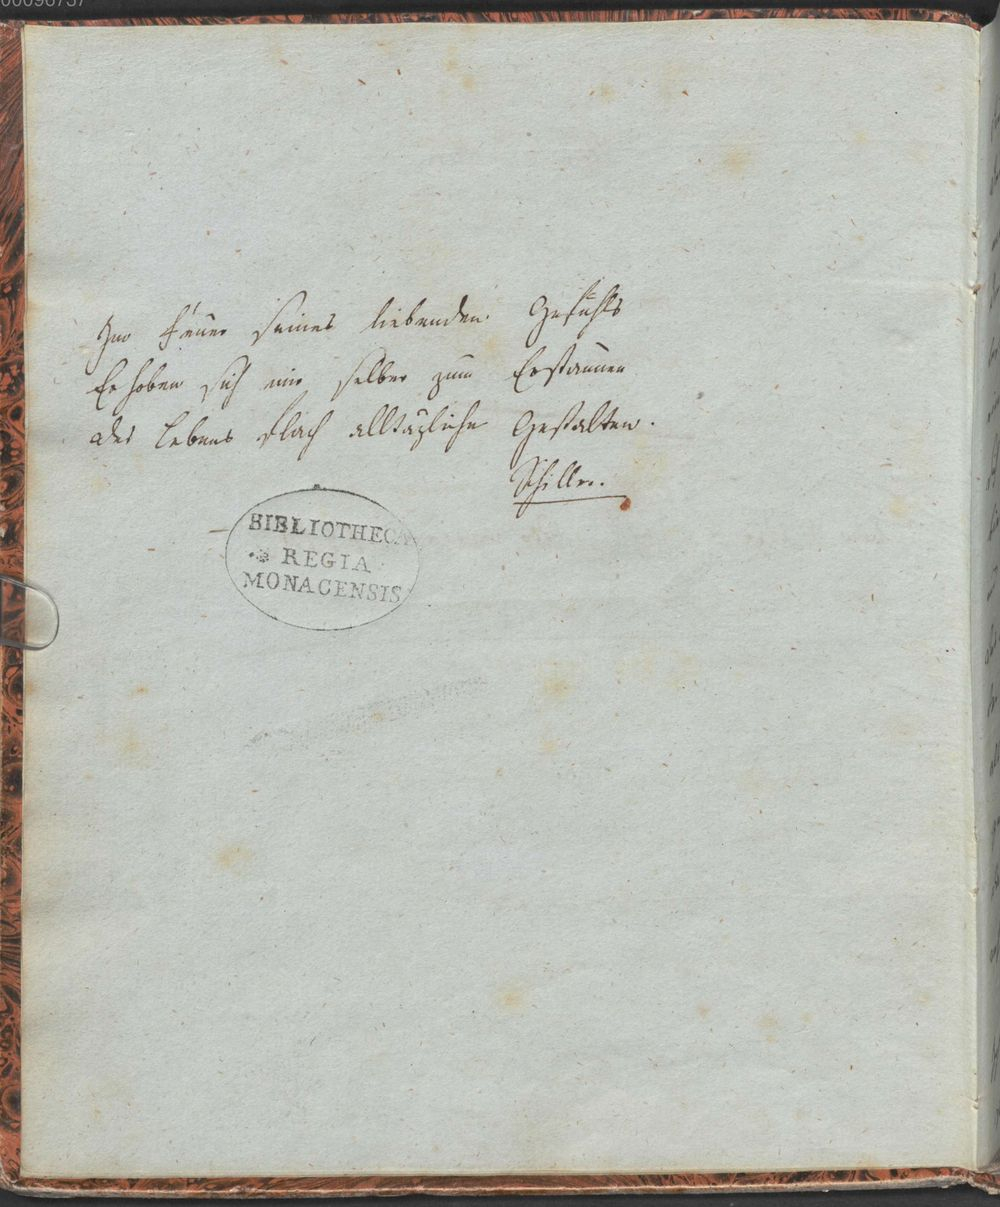 00096737
Im Feuer seines liebenden Gefühls
Erhoben sich mir selber zum Erstaunen
des Lebens flach alltägliche Gestalten.
Schiller.
BIBLIOTHECA
REGIA
MONACENSIS